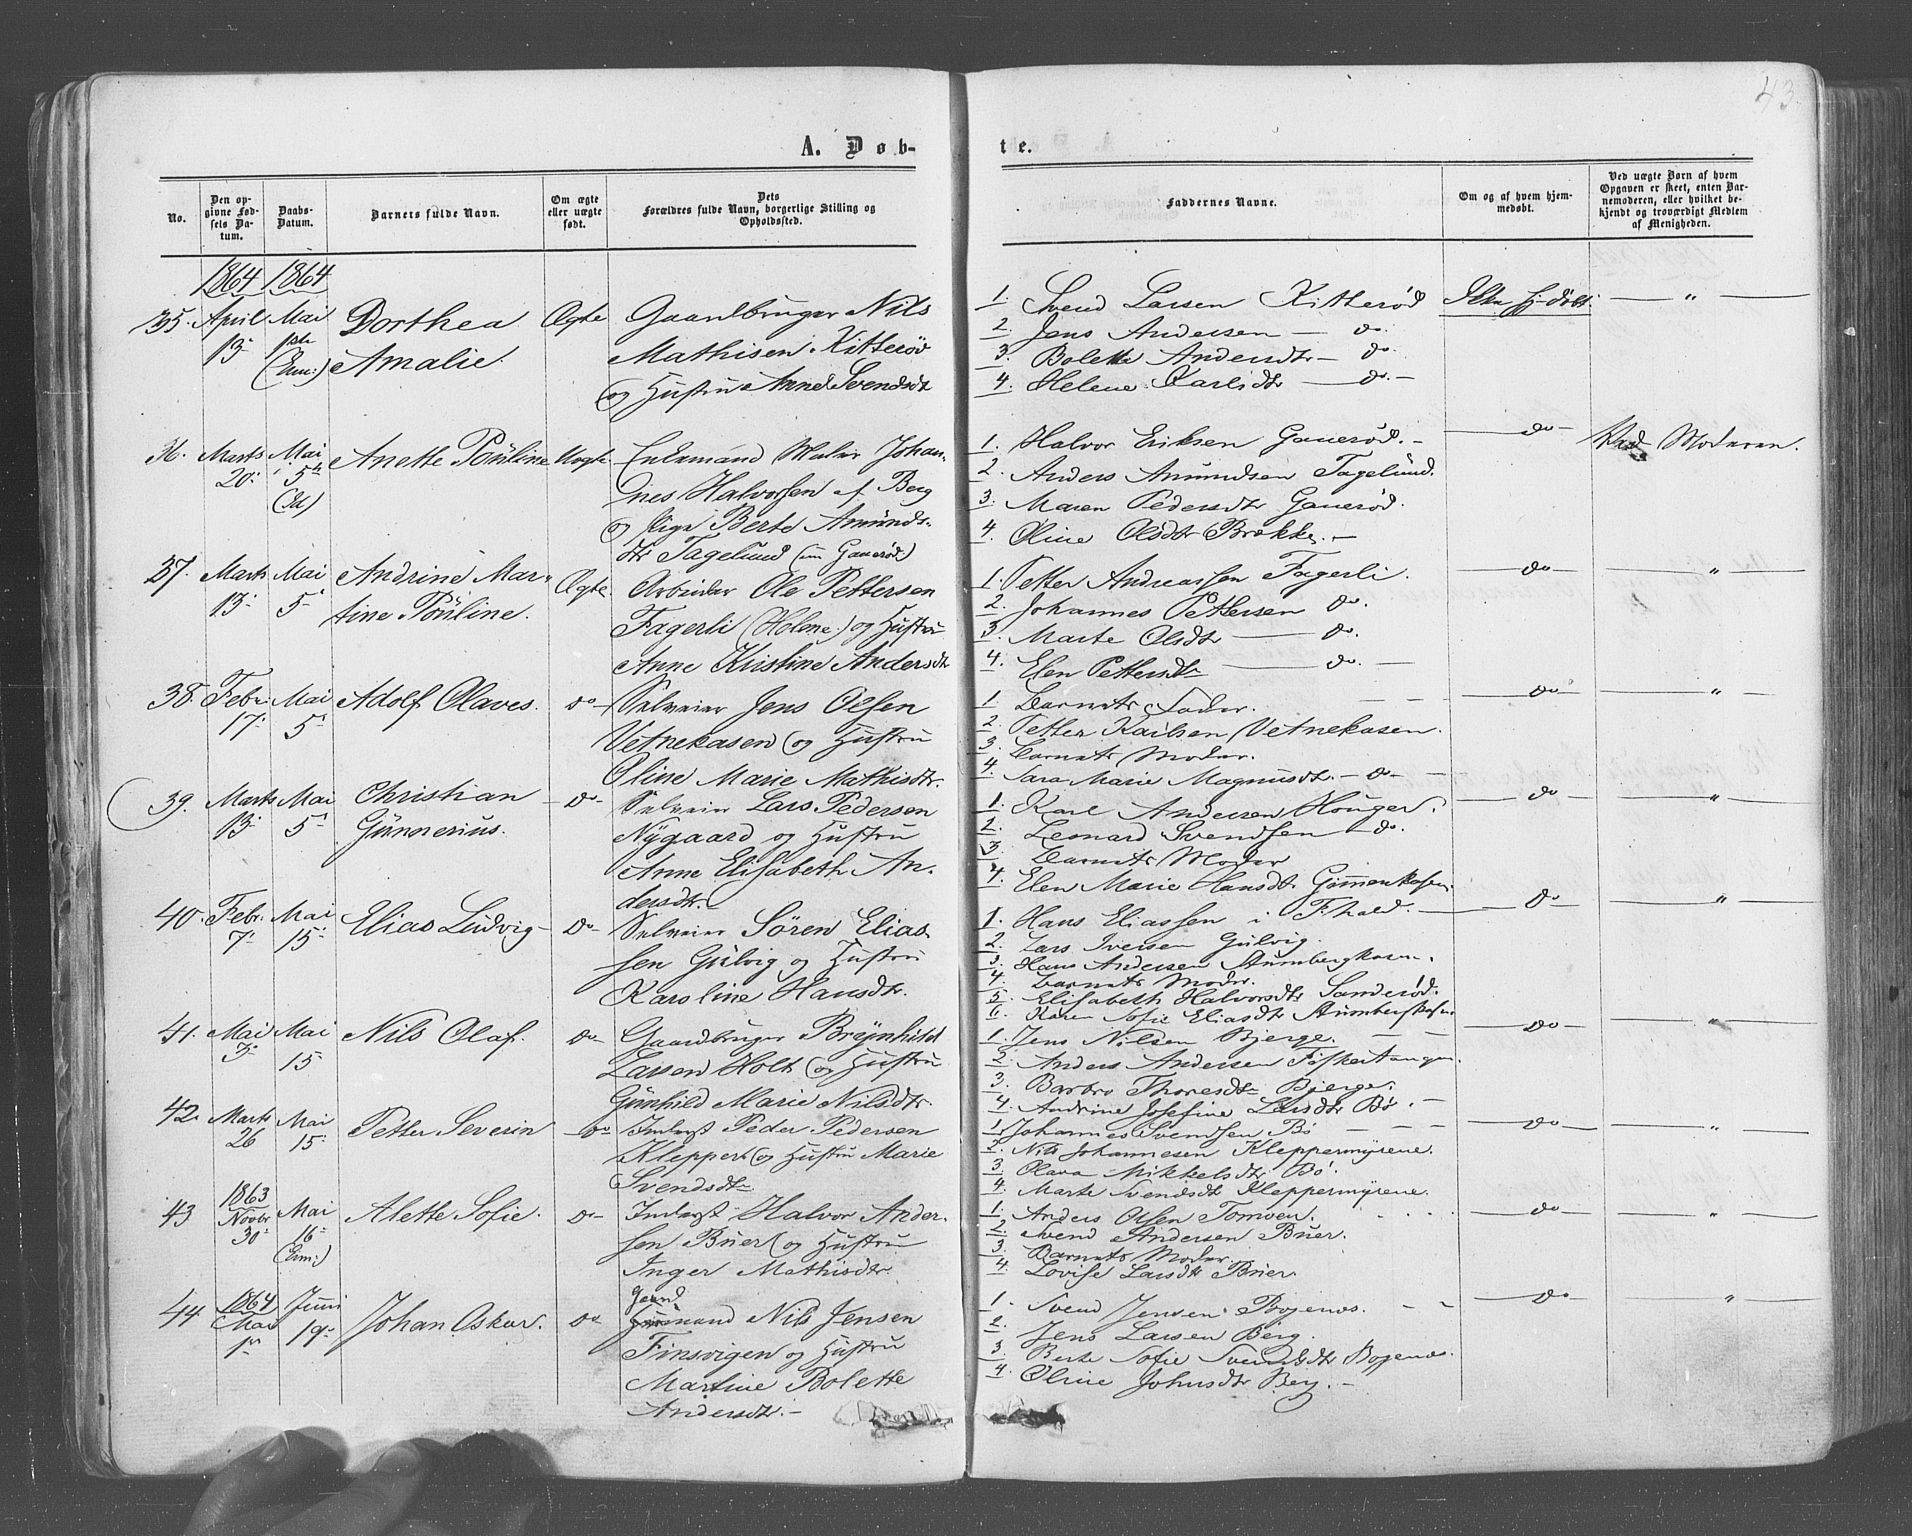 43.
A. Døb-
te.
No.
Den op-
givne Fød-
sels Da-
tum.
Daabs-
Datum.
Barnets fulde Navn.
Om ægte
eller uægte
født.
Dets
Forældres fulde Navn, borgerlige Stilling og
Opholdssted.
Faddernes Navne.
Om og af hvem hjem-
medøbt.
Ved uægte Børn af hvem
Opgaven er skeet, enten Bar-
nemoderen, eller hvilket be-
kjendt og troværdigt Medlem
af Menigheden.
1864 1864
35. April 13 Mai 1ste Dorthea
Amalie.
Ægte
Gaardbruger Nils
Mathisen Kitterød
og Hustru Anne Svendsdtr
1. Svend Larsen Kitterød
2. Jens Andersen — do.
3. Bolette Andersdtr — do.
4. Helene Karlsdtr — do. —
Ikke hj-døbt
— " —
36. Marts 20. Mai 5te
Anette Pouline
Uægte.
Enkemand Maler Johan-
nes Halvorsen af Berg
og Pige Berte Amunds-
dtr Tagelund (nu Ganerød)
1. Halvor Eriksen Ganerød. —
2. Anders Amundsen Tagelund.
3. Maren Pedersdtr Ganerød.
4. Oline Olsdtr Brække. —
— do —
Ved Moderen.
37. Marts 13. Mai 5.
Andrine Mar-
tine Pouline.
Ægte
Arbeider Ole Pettersen
Fagerli (Holene) og Hustru
Anne Kristine Andersdtr
1. Petter Andreassen Fagerli.
2. Johannes Pettersen do.
3. Marte Olsdtr — do.
4. Elen Pettersdtr — do. —
— do —
— " —
38. Febr. 17. Mai 5.
Adolf Olaves.
do —
Selveier Jens Olsen
Vetnekasen og Hustru
Oline Marie Mathisdtr.
1. Barnets Fader. — —
2. Petter Karlsen Vetnekasen.
3. Barnets Moder.
4. Sara Marie Magnusdtr. — do —
— do —
— " —
39. Marts 13. Mai 5.
Christian
Gunnerius.
— do —
Selveier Lars Pedersen
Nygaard og Hustru
Anne Elisabeth An-
dersdtr.
1. Karl Andersen Houger.
2. Leonard Svendsen — do.
3. Barnets Moder
4. Elen Marie Hansdtr
— do —
— " —
40. Febr. 7. Mai 15.
Elias Ludvig —
do —
Selveier Søren Elias-
sen Gulvig og Hustru
Karoline Hansdtr.
1. Hans Eliassen i F.hald. —
2. Lars Iversen Gulvig.
3. Hans Andersen
4. Barnets Moder.
5. Elisabeth Halvorsdtr Sanderød.
6. Karen Sofie Eliasdtr
— do —
— " —
41. Mai 3. Mai 15
Nils Olaf.
do —
Gaardbruger Brynhild
Larsen Holt og Hustru
Gunhild Marie Nilsdtr.
1. Jens Nilsen Bjerge. —
2. Anders Andersen
3. Barbro Thoresdtr Bjerge.
4. Andrine Josefine Larsdtr Bø. —
— do —
— " —
42. Marts 26 Mai 15.
Petter Severin
— do —
Inderst Peder Pedersen
Klepper og Hustru Marie
Svendsdtr
1. Johannes Svendsen Bø — — —
2. Nils Johannesen Kleppermyrene.
3. Olava Mikkelsdtr Bø.
4. Marte Svendsdtr Kleppermyrene.
— do —
— " —
1863
43 Novbr 30. Mai 16
Alette Sofie.
do —
Inderst Halvor Ander-
sen Buer og Hustru
Inger Mathisdtr.
1. Anders Olsen Tomven.
2. Svend Andersen Buer.
3. Barnets Moder.
4. Lovise Larsdtr Buer
— do —
— " —
1864
44. Mai 1ste Juni 19.
Johan Oskar.
do
Gaard
mand Nils Jensen
Finsvigen og Hustru
Martine Bolette
Andersdtr. —
1. Svend Jensen
2. Jens Larsen Berg.
3. Berte Sofie Svendsdtr
4. Oline Johnsdtr Berg. —
— do —
"